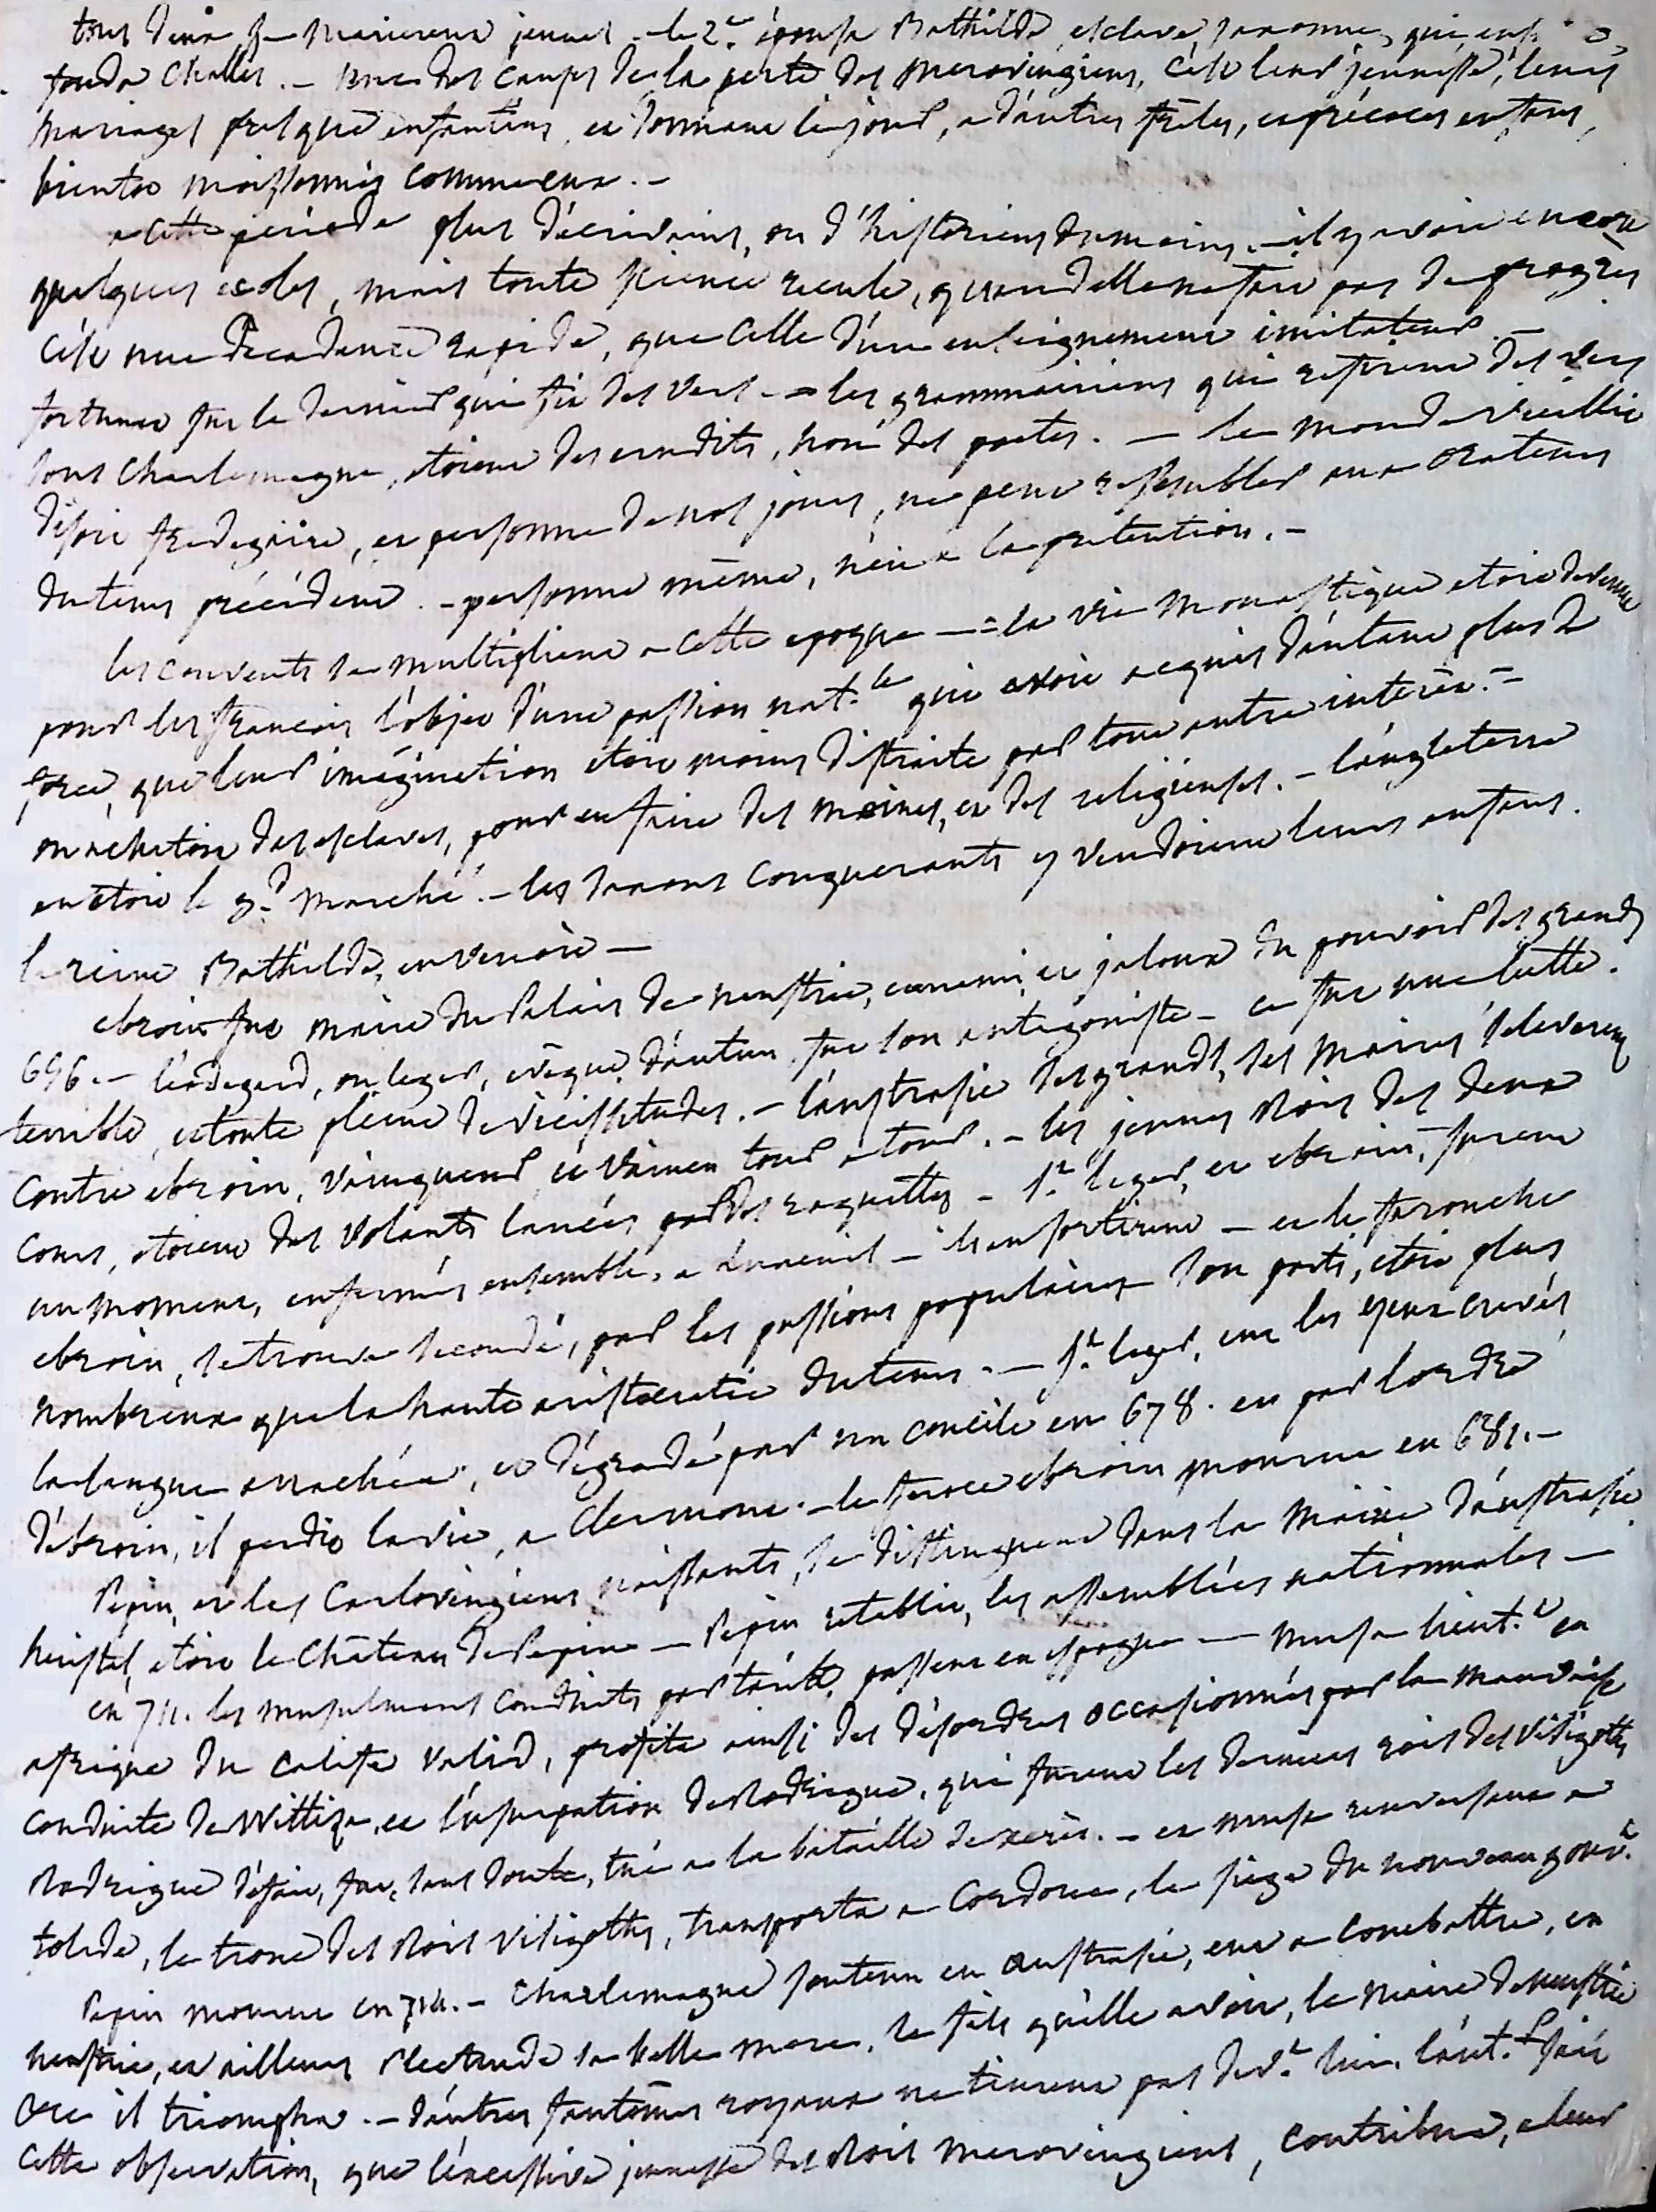 tous deux se marièrent jeunes - le 2.e épousa Bathilde, esclave saxonne, qui ensuite
fonda Chelles. - une des causes de la perte des merovingiens, c'est leur jeunesse, leurs
mariages presque enfantins, et donnant le jour, a d'autres frêles, et précoces enfans,
bientot moissonnés comme eux. -
a cette periode plus d'écrivains, ou d'historiens du moins. - il y avoit encore
quelques ecoles, mais toute science recule, quand elle ne fait pas de progrès
c'est une décadence rapide, que celle d'un enseignement imitateur. -
fortunat fut le dernier qui fit des vers - les grammairiens qui refirent des vers
sous Charlemagne, etoient des erudits, non des poetes. - le monde vieillit
disoit fredegaire, et personne de nos jours, ne peut ressembler aux orateurs
du tems précédent. - personne même, n'en a la prétention. -
les couvents se multiplient a cette epoque - la vie monastique etoit devenue
pour les francais l'objet d'une passion nat.le qui avoit acquis d'autant plus de
force, que leur imagination etoit moins distraite, par tout autre intérêt. -
on achetoit des esclaves, pour en faire des moines, et des religieuses. - l'angleterre
en etoit le g.d marché. - les saxons conquerants y vendoient leurs enfans.
la reine Bathilde, en venoit -
ebroin fut maire du Palais de neustrie, ennemi, et jaloux du pouvoir des grands
656. - léodegard, ou leger, evêque d'autun fut son antagoniste - ce fut une lutte.
terrible, et toute pleine de vicissitudes. - l'austrasie ses grands, ses maires s'eleverent
contre ebroin, vainqueur et vaincu tour a tour. - les jeunes Rois des deux
cours, etoient des volants lancés par des raquettes - S.t leger, et ebroin, furent
un moment, enfermés ensemble, a Luxeuil - ils en sortirent - et le farouche
ebroin, se trouva secondé, par les passions populaires son parti, etoit plus
nombreux que la haute aristocratie du tems. - S.t leger, eut les yeux crevés
la langue arrachée, et dégradé par un concile en 678. et par l'ordre
d'ebroin, il perdit la vie, a Clermont. - le feroce ebroin mourut en 681. -
Pepin, et les Carlovingiens naissants, se distinguent dans la Mairie d'austrasie
heristal, etoit le Château de Pepin - Pepin retablit, les assemblées nationnales -
en 711. les musulmans conduits par tarik, passent en espagne - musa lieut.t en
afrique du calife valid, profita ainsi des désordres occasionnés par la mauvaise
conduite de Wittiza, et l'usurpation de Rodrigue, qui furent les derniers rois des Visigoths
Rodrigue défait, fut, sans doute, tué a la bataille de xerès. - et musa renversant a
tolede, le trone des Rois Visigoths, transporta a Cordoue, le siège du nouveau gouv.t
Pepin mourut en 714. - Charlemagne soutenu en austrasie, eut a combattre, en
neustrie, et ailleurs Plectrude sa belle mere, le fils qu'elle avoit, le maire de neustrie
&c il triompha. - d'autres fantômes royaux ne tinrent pas dev.t lui. l'aut.r fait
cette observation, que l'excessive jeunesse des Rois merovingiens, contribua, a leur